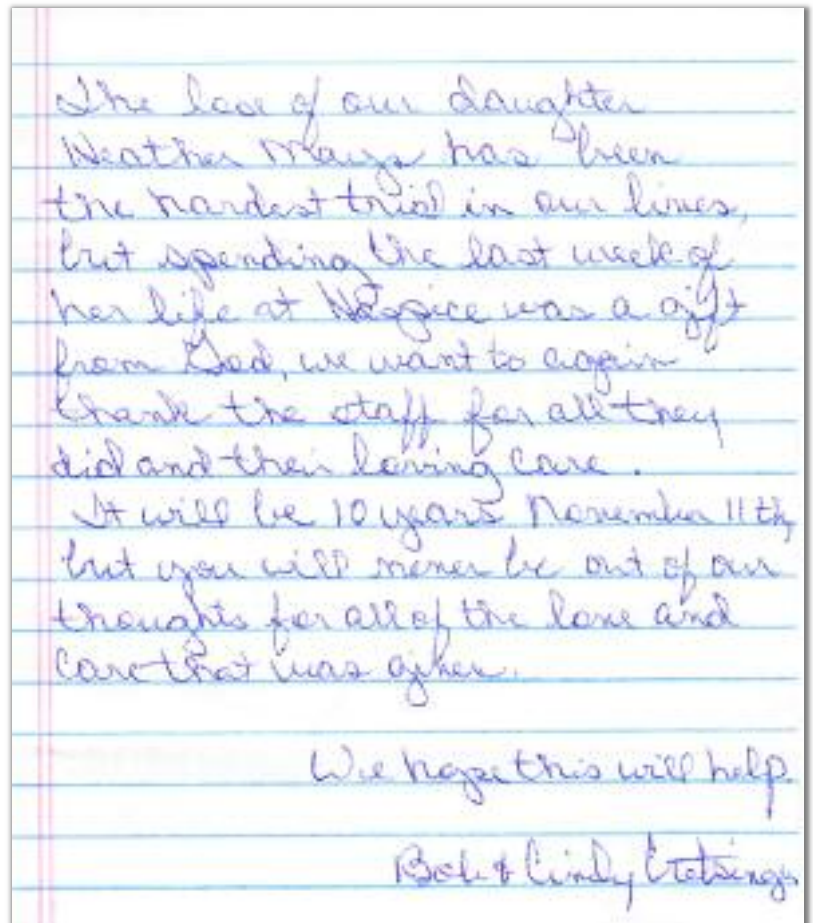 The loss of our daughter
Heather Mays has been
the hardest trial in our lives,
but spending the last week of
her life at Hospice was a gift
from God, we want to again
thank the staff for all they
did and their loving care.
It will be 10 years November 11th,
but you will never be out of our
thoughts for all of the love and
care that was given.
We hope this will help.
Bob & Cindy